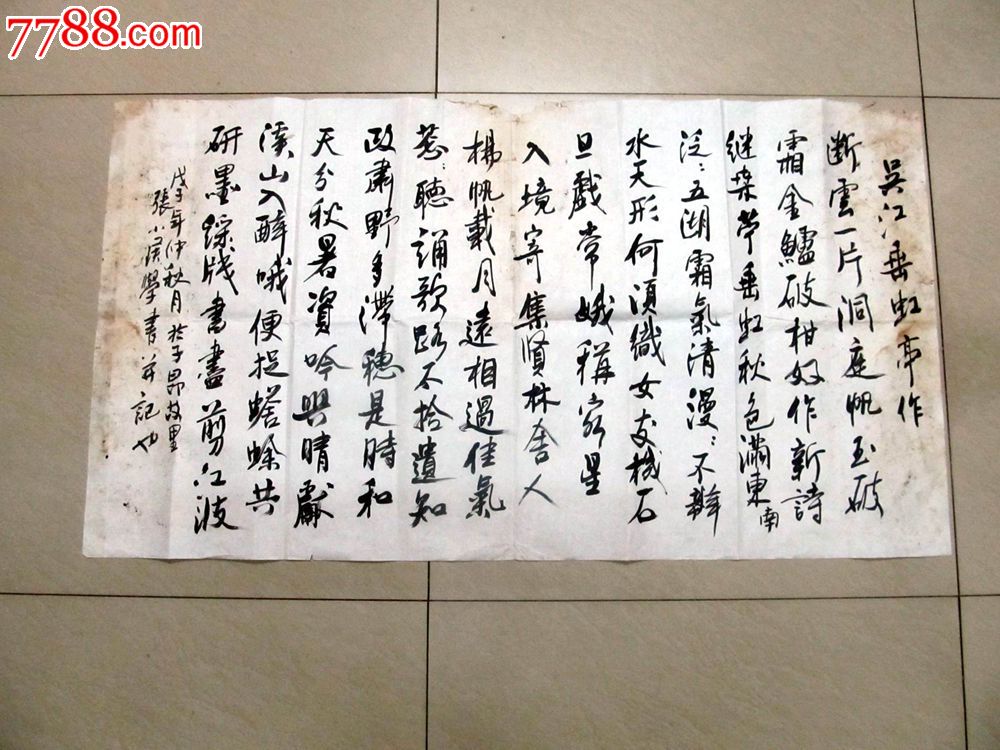 7788.com
吳江垂虹亭作
断雲一片洞庭帆玉破
霜金鱸破柑好作新詩
继桑苧垂虹秋色滿東南
泛:五湖霜氣清漫:不辨
水天形何須織女支機石
且戲常娥稱客星
入境寄集賢林舍人
揚帆載月遠相過佳氣
葱:聽誦歌路不拾遺知
政肅野多滯穗是時和
天分秋暑資吟興晴獻
溪山入醉哦便捉蟾蜍共
研墨綵牋書盡剪江波
戊子年仲秋月於子昂故里
張小侯學書并記也